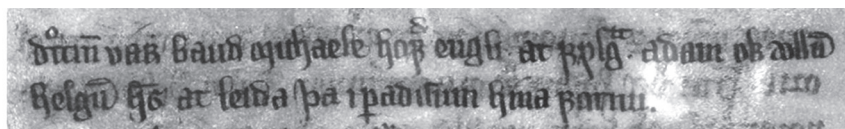 dͦttin̄ vaʀ baud michaele hof᷎ᵈ engli at ꝼylgᵃ. adam ok ollū
helgū hs̄ at leida þa i ꝑadisum hina ꝼornu.